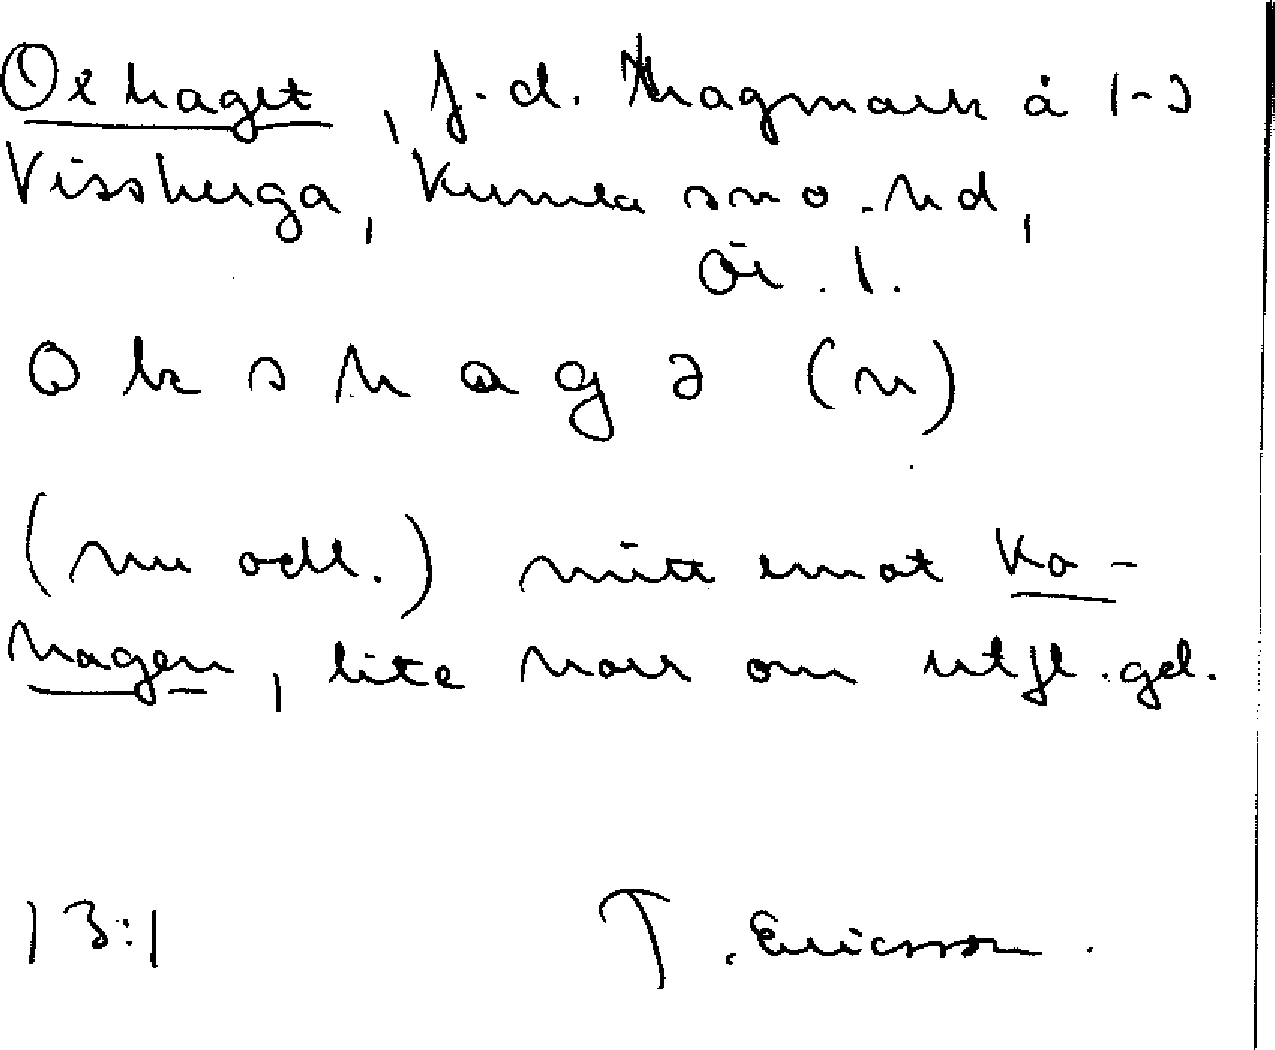 Oxhaget, f.d. hagmark å 1-3
Vissberga, Kumla sn o. hd,
Ör. l.
o k s h a g ə (n)
(nu odl.) mitt emot Ko-
hagen, lite norr om utfl. gd.
13:1 T. Ericsson.